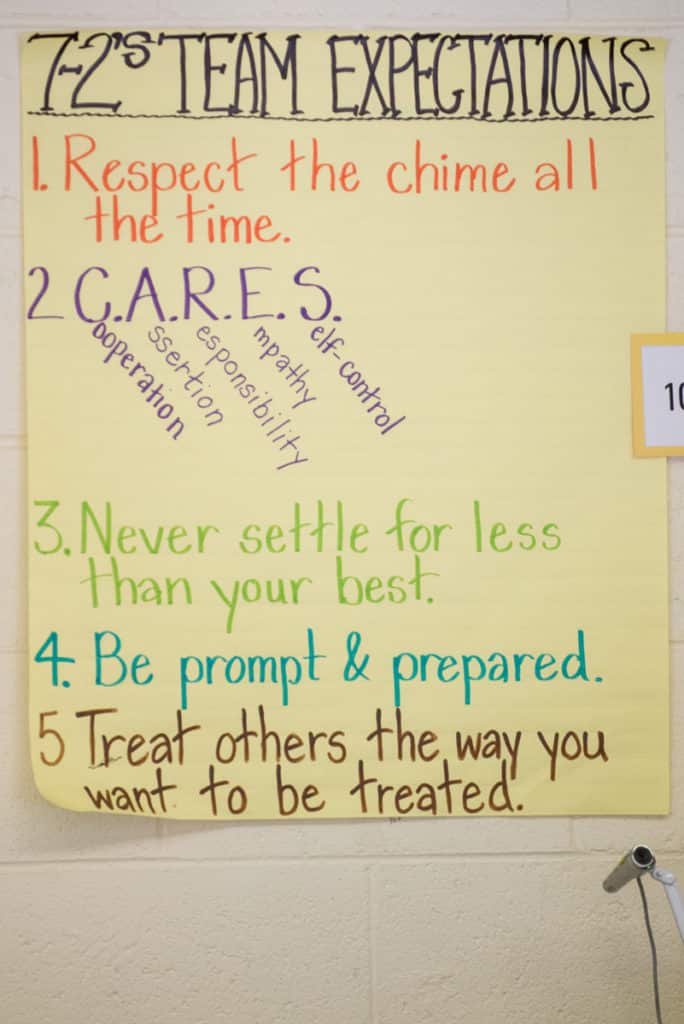 7-2'S TEAM EXPECTATIONS
1. Respect the chime all
the time.
2 C.A.R.E.S.
ooperation
ssertion
esponsibility
mpathy
elf-control
3. Never settle for less
than your best.
4. Be prompt & prepared.
5 Treat others the way you
want to be treated.